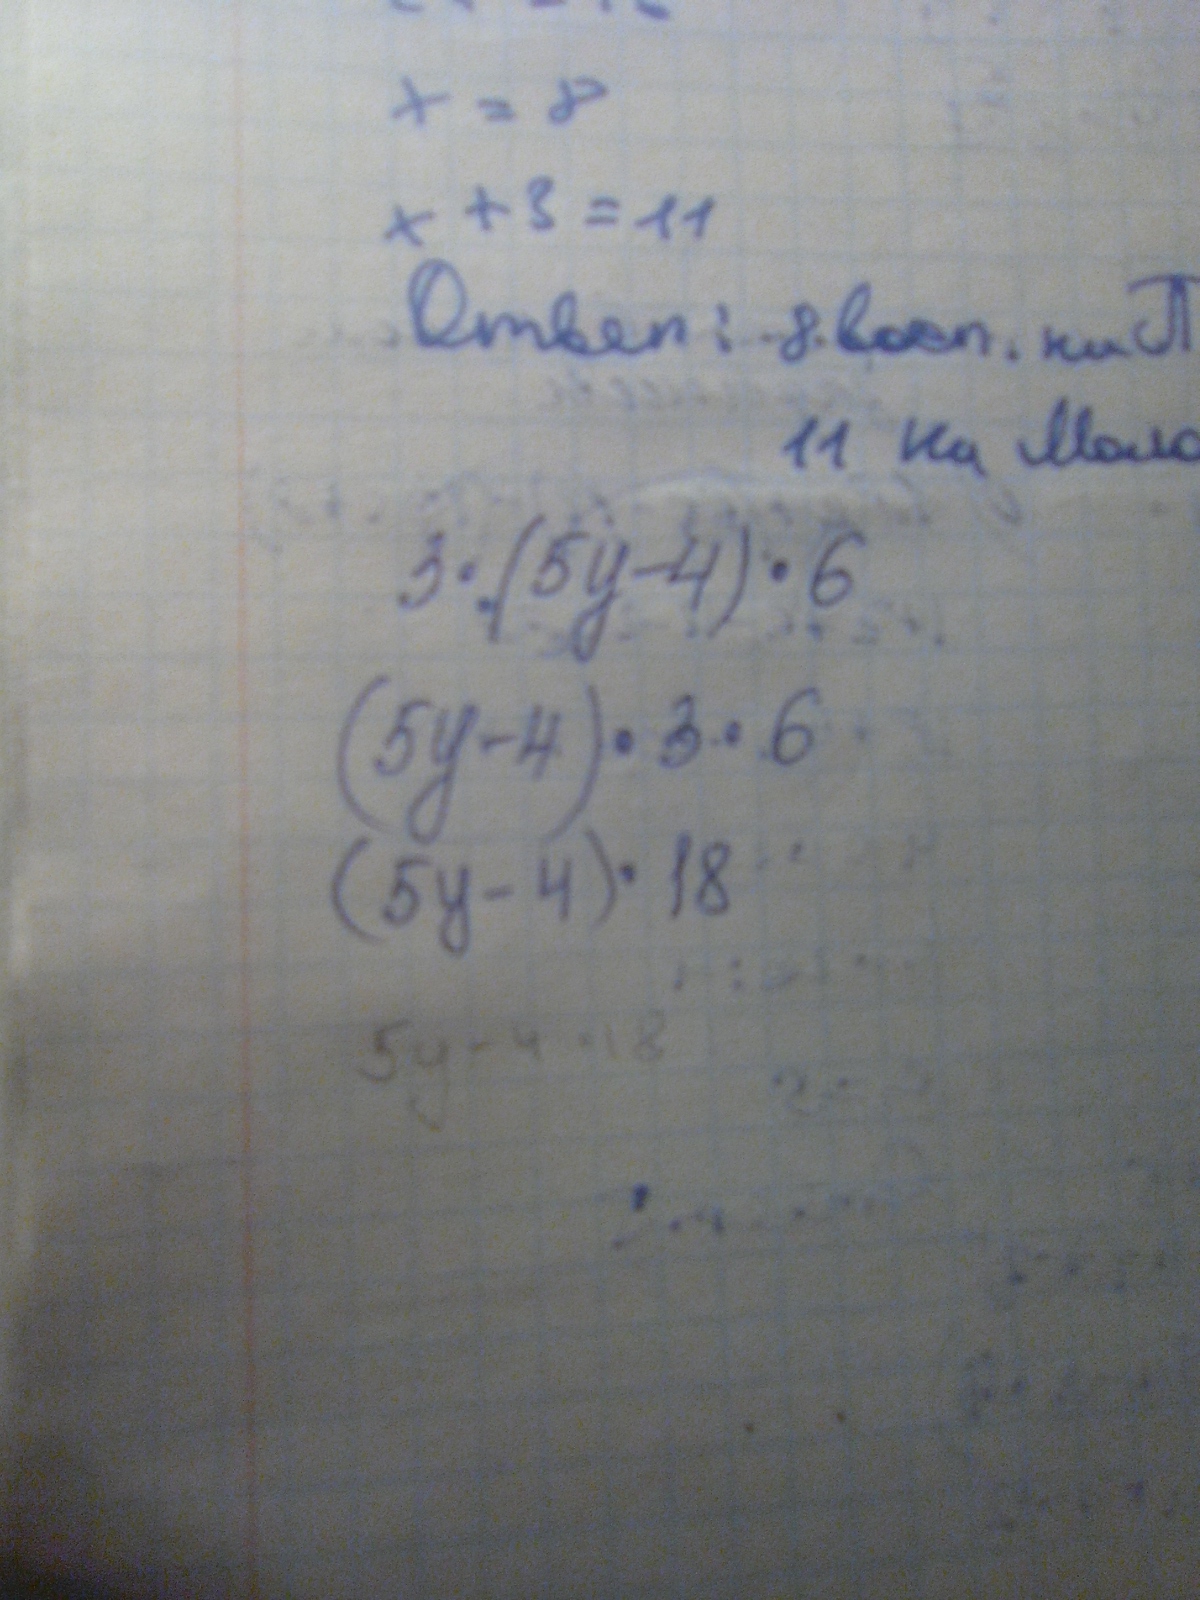 x = 8
x + 3 = 11
Ответ: 8 восп. на П
11 на Мало
3·(5y-4)·6
(5y-4)·3·6
(5y-4)·18
5y-4·18